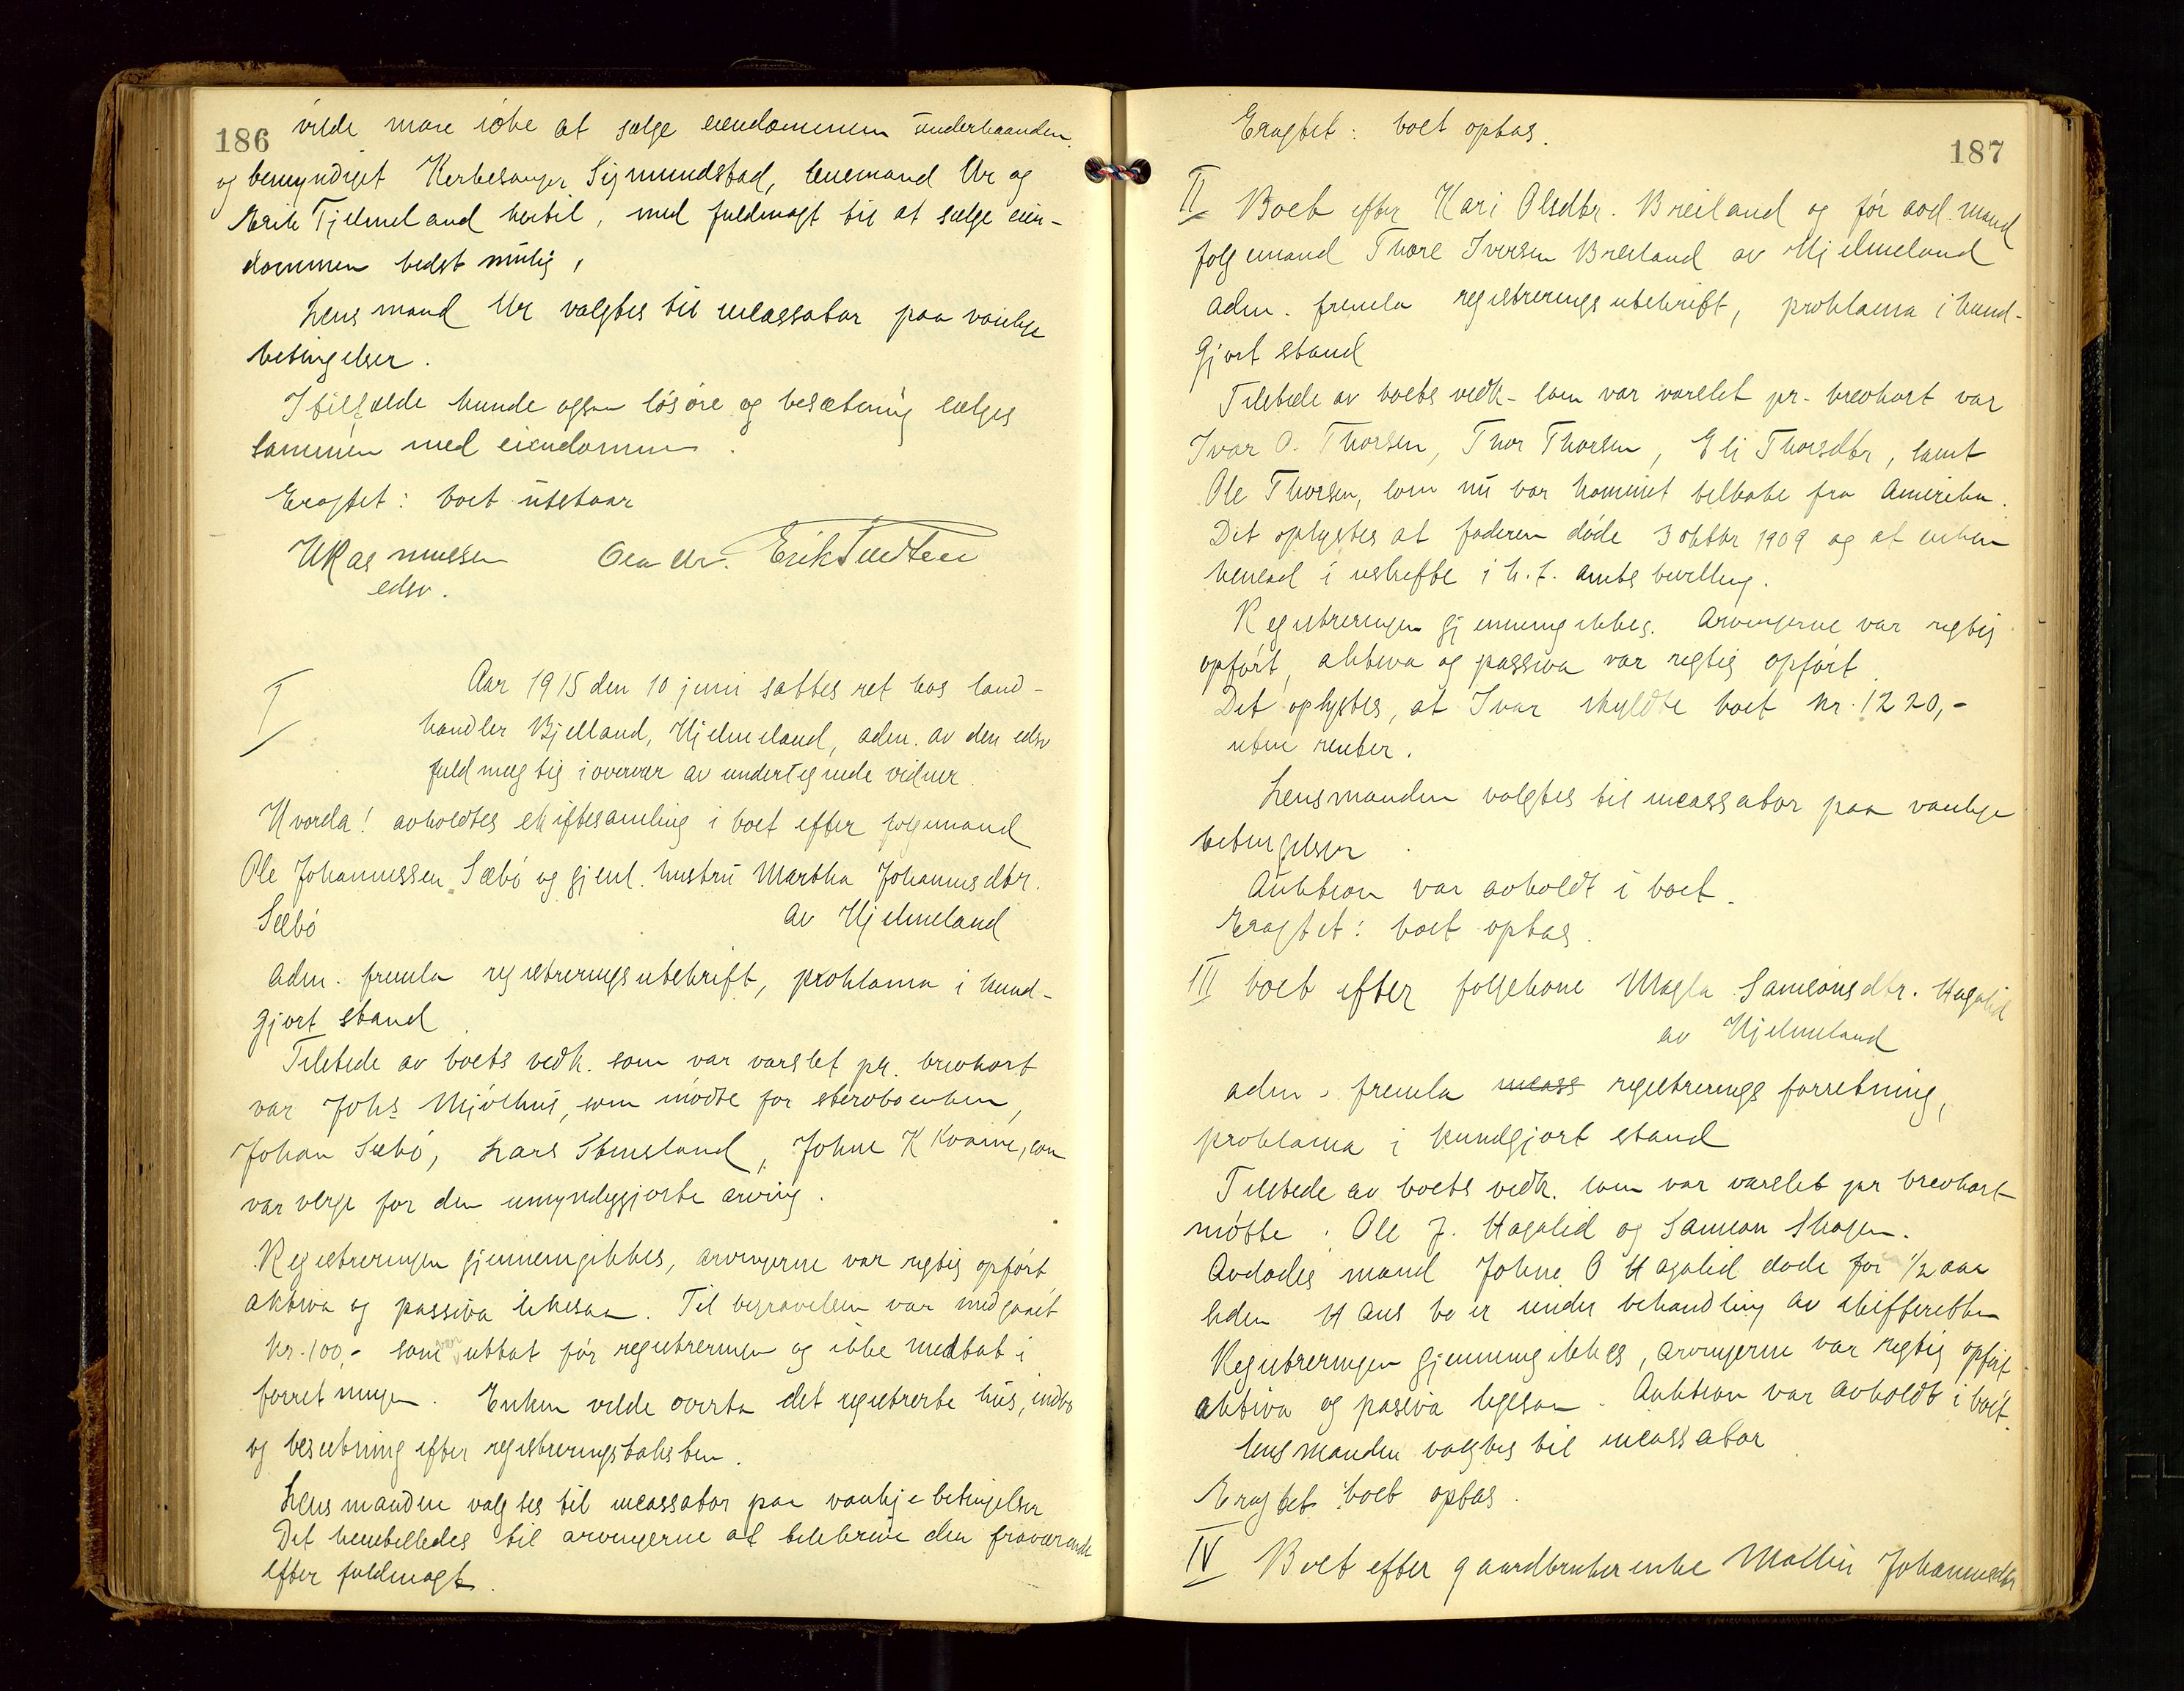 186
vilde man søke at sælge eiendommen underhaanden
og bemyndiget Kirkesanger Sigmundstad, lensmand Ur og
Erik Tjelmeland hertil, med fuldmagt til at sælge eien-
dommen bedst mulig,
Lensmand Ur valgtes til incassator paa vanlige
betingelser.
I tilfælde kunde ogsaa løsøre og besætning sælges
sammen med eiendommen.
Eragtet: boet utstaar
URasmussen Ola Ur. Erik
edsv.
I Aar 1915 den 10 juni sattes ret hos land-
handler Bjelland, Hjelmeland, adm. av den edsv
fuldmægtig i overvær av undertegnede vidner
Hvorda! avholdtes skiftesamling i boet efter folgemand
Ole Johannessen Sæbø og gjenl. hustru Martha Johannesdtr.
Sæbø av Hjelmeland
Adm. fremla registreringsutskrift, proklama i kund-
gjort stand.
Tilstede av boets vedk. som var varslet pr. brevkort
var Johs Mjølhus, som mødte for sterboenken,
Johan Sæbø, Lars Steinsland, Johne K Kvame, som
var verge for den umyndiggjorte arving.
Registreringen gjennemgikkes, arvingerne var rigtig opført
aktiva og passiva likesaa. Til begravelsen var medgaaet
kr. 100,- som var uttat før registreringen og ikke medtat i
forretningen. Enken vilde overta det registrerte hus, indbo
og besætning efter registreringstaksten.
Lensmanden valgtes til incassator paa vanlige betingelser
Det henstilledes til arvingerne at tilskrive den fraværende
efter fuldmagt.
187
Eragtet: boet optas.
II Boet efter Kari Olsdtr. Breiland og før avd. mand
folgemand Thore Iversen Breiland av Hjelmeland
Adm. fremla registreringsutskrift, proklama i kund-
gjort stand
Tilstede av boets vedk. som var varslet pr. brevkort var
Ivar O. Thorsen, Thor Thorsen, Eli Thorsdtr, samt
Ole Thorsen, som nu var kommet tilbake fra Amerika.
Det oplystes at faderen døde 3 oktbr 1909 og at enken
hensad i uskifte i h. t. amts bevilling.
Registreringen gjennemgikkes. Arvingerne var rigtig
opført, aktiva og passiva var rigtig opført.
Det oplystes, at Ivar skyldte boet kr. 1220,-
uten renter.
Lensmanden valgtes til incassator paa vanlige
betingelser.
Auktion var avholdt i boet.
Eragtet: boet optas.
III boet efter folgekone Magla Samsonsdtr. Hagalid
av Hjelmeland
adm. fremla incass registrerings forretning,
proklama i kundgjort stand
Tilstede av boets vedk. som var varslet pr brevkort
møtte: Ole J. Hagalid og Samson Skogen.
Avdødes mand Johne O Hagalid døde for 1/2 aar
siden Hans bo er under behandling av skifteretten
Registreringen gjennemgikkes, arvingerne var rigtig opført
aktiva og passiva ligesaa. Auktion var avholdt i boet.
lensmanden valgtes til incassator
Eragtet boet optas.
IV Boet efter gaardbrukerenke Mallin Johannesdtr